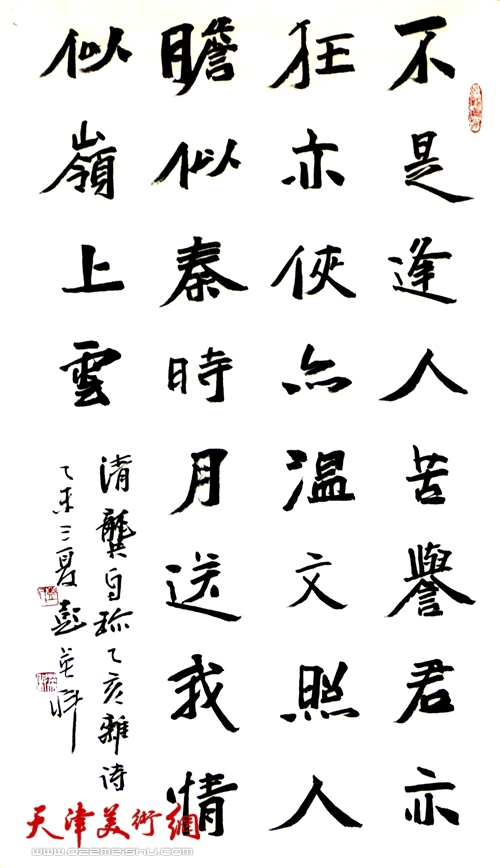 不是逢人苦譽君亦
狂亦俠亦温文照人
膽似秦時月送我情
似嶺上雲
清龔自珍乙亥雜诗
乙未三夏彭英科
天津美術網
www.022meishu.com